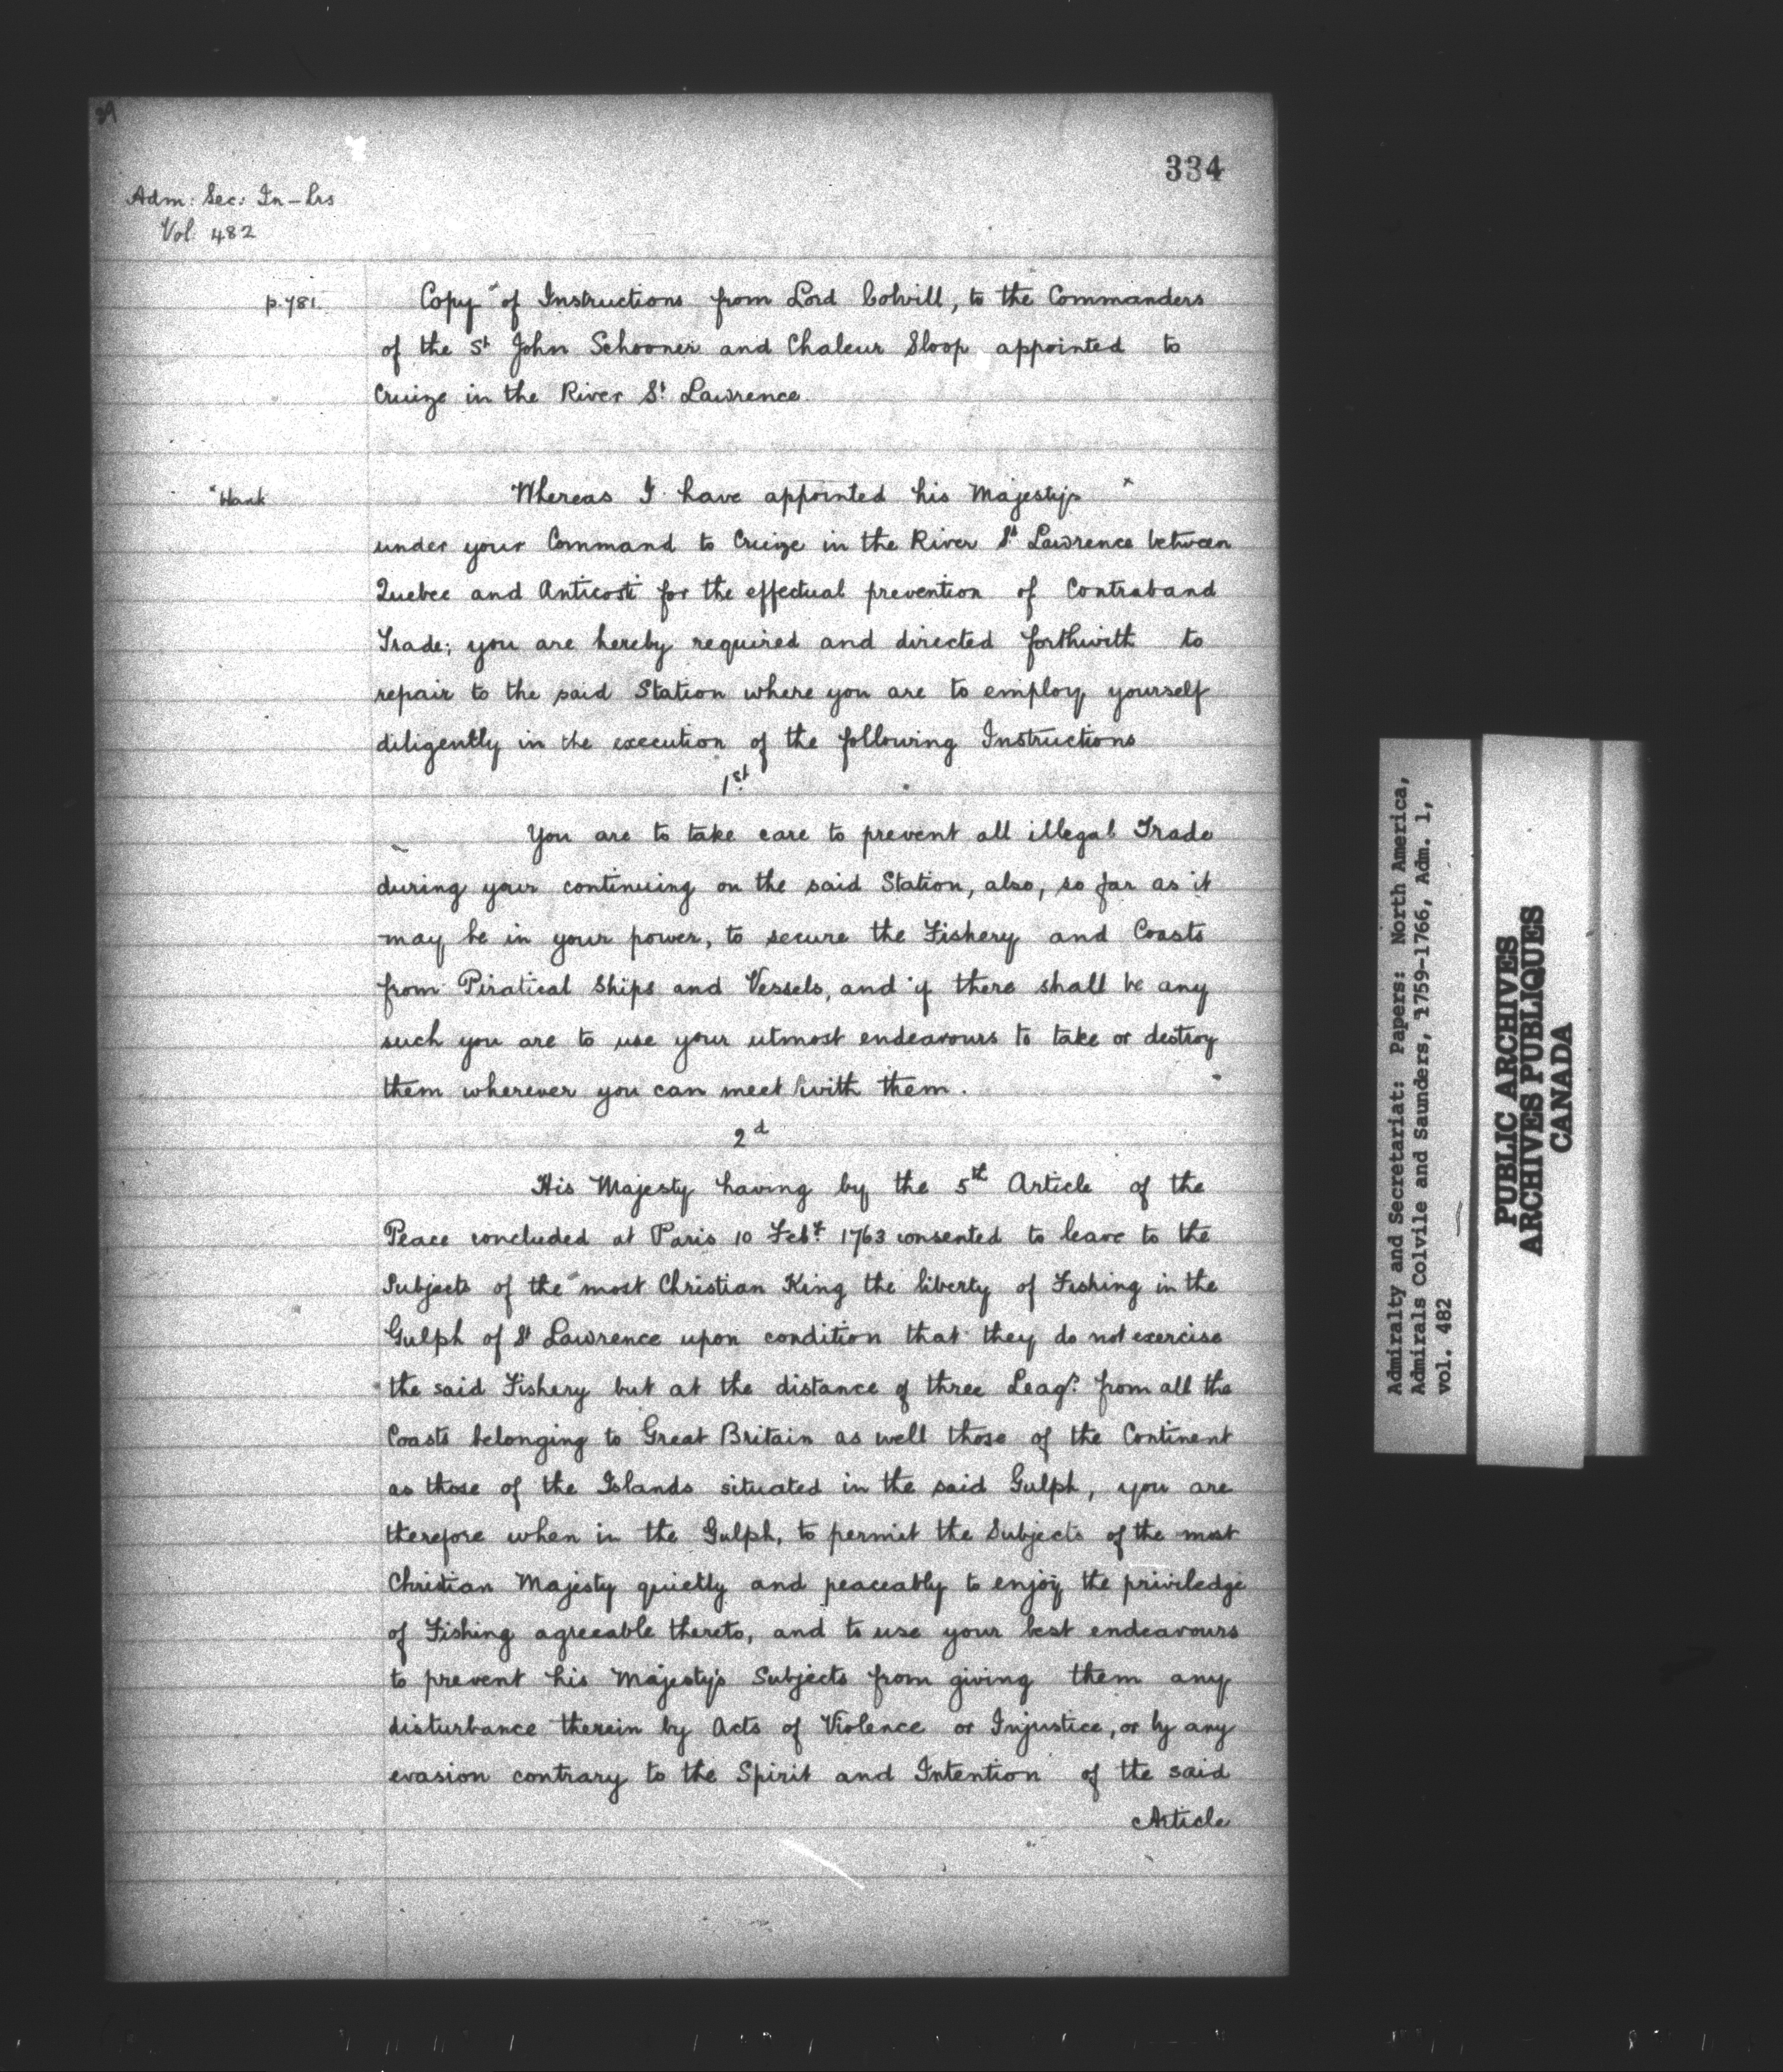 39
334
Adm: Sec: In-Lrs
Vol: 482
p. 781.
Copy of Instructions from Lord Colvill, to the Commanders
of the St John Schooner and Chaleur Sloop appointed to
Cruize in the River St Lawrence.
*blank
Whereas I have appointed his Majestys *
under your Command to Cruize in the River St Lawrence between
Quebec and Anticosti for the effectual prevention of Contraband
Trade; you are hereby required and directed forthwith to
repair to the said Station where you are to employ yourself
diligently in the execution of the following Instructions
1st
You are to take care to prevent all illegal Trade
during your continuing on the said Station, also, so far as it
may be in your power, to secure the Fishery and Coasts
from Piratical Ships and Vessels, and if there shall be any
such you are to use your utmost endeavours to take or destroy
them wherever you can meet with them.
2d
His Majesty having by the 5th Article of the
Peace concluded at Paris 10 Feby 1763 consented to leave to the
Subjects of the most Christian King the liberty of Fishing in the
Gulph of St Lawrence upon condition that they do not exercise
the said Fishery but at the distance of three Leags from all the
Coasts belonging to Great Britain as well those of the Continent
as those of the Islands situated in the said Gulph, you are
therefore when in the Gulph, to permit the Subjects of the most
Christian Majesty quietly and peaceably to enjoy the priviledge
of Fishing agreeable thereto, and to use your best endeavours
to prevent his Majesty's Subjects from giving them any
disturbance therein by Acts of Violence or Injustice, or by any
evasion contrary to the Spirit and Intention of the said
Article
Admiralty and Secretariat: Papers: North America,
Admirals Colvile and Saunders, 1759-1766, Adm. 1,
vol. 482
PUBLIC ARCHIVES
ARCHIVES PUBLIQUES
CANADA